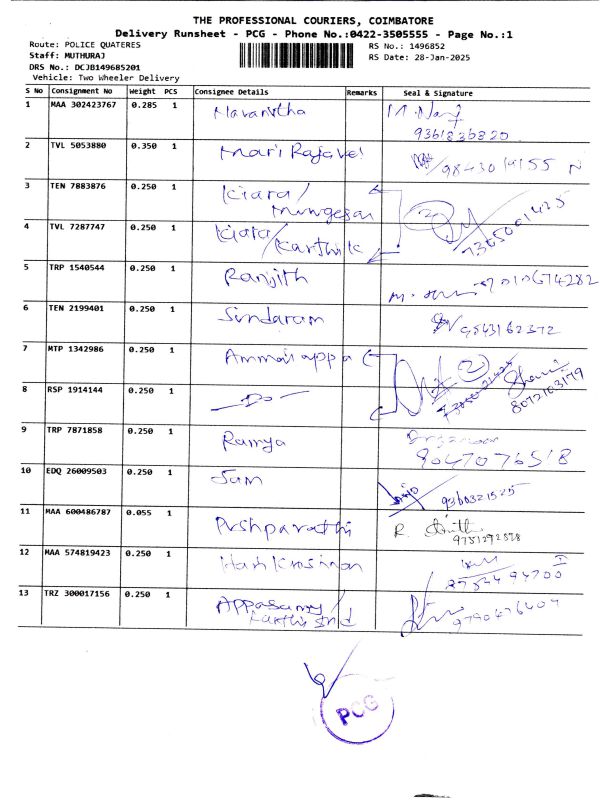 THE PROFESSIONAL COURIERS, COIMBATORE
Delivery Runsheet - PCG - Phone No.:0422-3505555 - Page No.:1
Route: POLICE QUATERES RS No.: 1496852
Staff: MUTHURAJ RS Date: 28-Jan-2025
DRS No.: DCJB149685201
Vehicle: Two Wheeler Delivery
S No Consignment No Weight PCS Consignee Details Remarks Seal & Signature
1 MAA 302423767 0.285 1 Navanitha
9361836820
2 TVL 5053880 0.350 1 Mari Rajavel 9843019155
3 TEN 7883876 0.250 1 Kiara /
Murugesan
2 7365001425
4 TVL 7287747 0.250 1 Kiara / Karthik
5 TRP 1540544 0.250 1 Ranjith 9010674282
6 TEN 2199401 0.250 1 Sundaram 9543162372
7 MTP 1342986 0.250 1 Ammaiappa 2
8072103179
8 RSP 1914144 0.250 1 - Do -
9 TRP 7871858 0.250 1 Ramya
9047076518
10 EDQ 26009503 0.250 1 Sam 9360321525
11 MAA 600486787 0.055 1 Pushparathi R.
9751292878
12 MAA 574819423 0.250 1 Hari Krishnan
13 TRZ 300017156 0.250 1 Appasamy / 9790476404
PCG